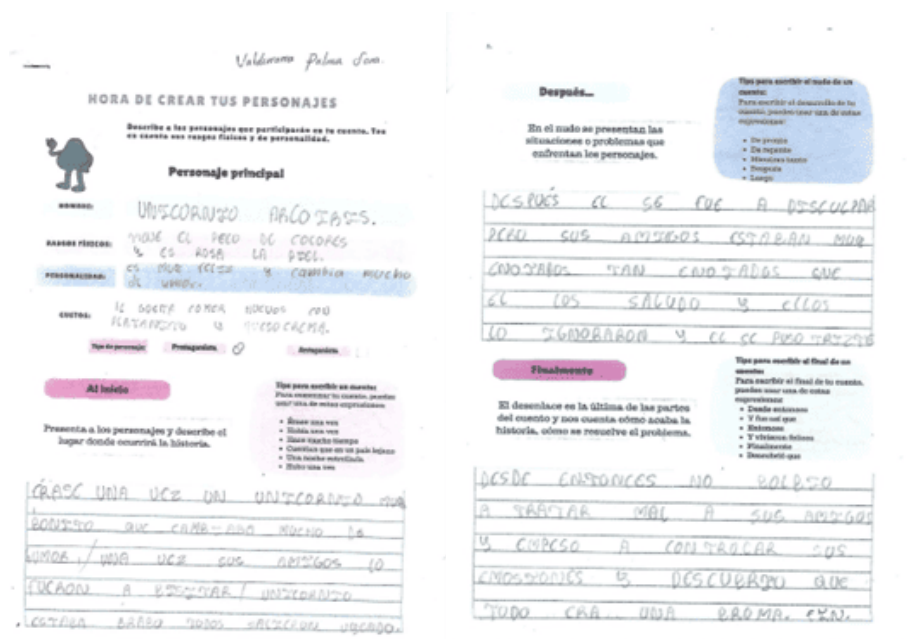 Valderrama Palma Sam.
HORA DE CREAR TUS PERSONAJES
Describe a los personajes que participarán en tu cuento. Ten
en cuenta sus rasgos físicos y de personalidad.
Personaje principal
NOMBRE:
UNICORNIO ARCOIRIS.
RASGOS FÍSICOS:
TIENE EL PELO DE COLORES
Y ES ROSA LA PIEL.
PERSONALIDAD:
ES MUY FELIZ Y cambia mucho
de
GUSTOS:
LE GUSTA COMER HUEVOS CON
PLATANITO Y QUESO CREMA.
Tipo de personaje:
Protagonista
Antagonista
Al inicio
Presenta a los personajes y describe el
lugar donde ocurrirá la historia.
Tips para escribir un cuento:
Para comenzar tu cuento, puedes
usar una de estas expresiones:
Érase una vez
Había una vez
Hace mucho tiempo
Cuentan que en un país lejano
Una noche estrellada
Hubo una vez
ERASE UNA VEZ UN UNICORNIO MUY
BONITO QUE CAMBIABA MUCHO DE
UMOR/ UNA VEZ SUS AMIGOS LO
FUERON A BISITAR/ UNICORNIO
ESTABA BRABO TODOS SALIERON
Después...
En el nudo se presentan las
situaciones o problemas que
enfrentan los personajes.
Tips para escribir el nudo de un
cuento:
Para escribir el desarrollo de tu
cuento, puedes usar una de estas
expresiones:
De pronto
De repente
Mientras tanto
Después
Luego
DESPUÉS EL SE FUE A DISCULPAR
PERO SUS AMIGOS ESTABAN MUY
ENOJADOS TAN ENOJADOS QUE
EL LOS SALUDO Y ELLOS
LO IGNORARON Y EL SE PUSO TRISTE
Finalmente
El desenlace es la última de las partes
del cuento y nos cuenta cómo acaba la
historia, cómo se resuelve el problema.
Tips para escribir el final de un
cuento:
Para escribir el final de tu cuento,
puedes usar una de estas
expresiones:
Desde entonces
Y fue así que
Entonces
Y vivieron felices
Finalmente
Descubrió que
DESDE ENTONCES NO BOLBIO
A TRATAR MAL A SUS AMIGOS
Y EMPESO A CONTROLAR SUS
EMOSIONES Y DESCUBRIO QUE
TODO ERA UNA BROMA. FIN.